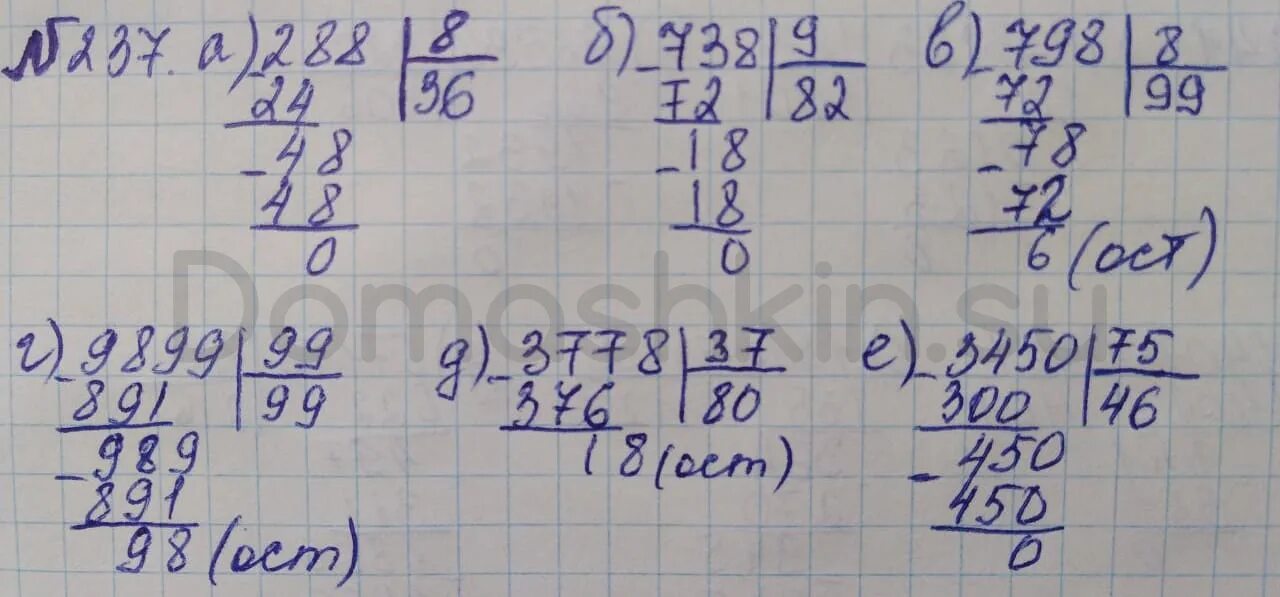 №237. а) 288 | 8 б) 738 | 9 в) 798 | 8
24 | 36 72 | 82 72 | 99
48 18 78
48 18 72
0 0 6 (ост)
Domoshkin.su
г) 9899 | 99 д) 3778 | 37 е) 3450 | 75
891 | 99 376 | 80 300 | 46
989 18 (ост) 450
891 450
98 (ост) 0